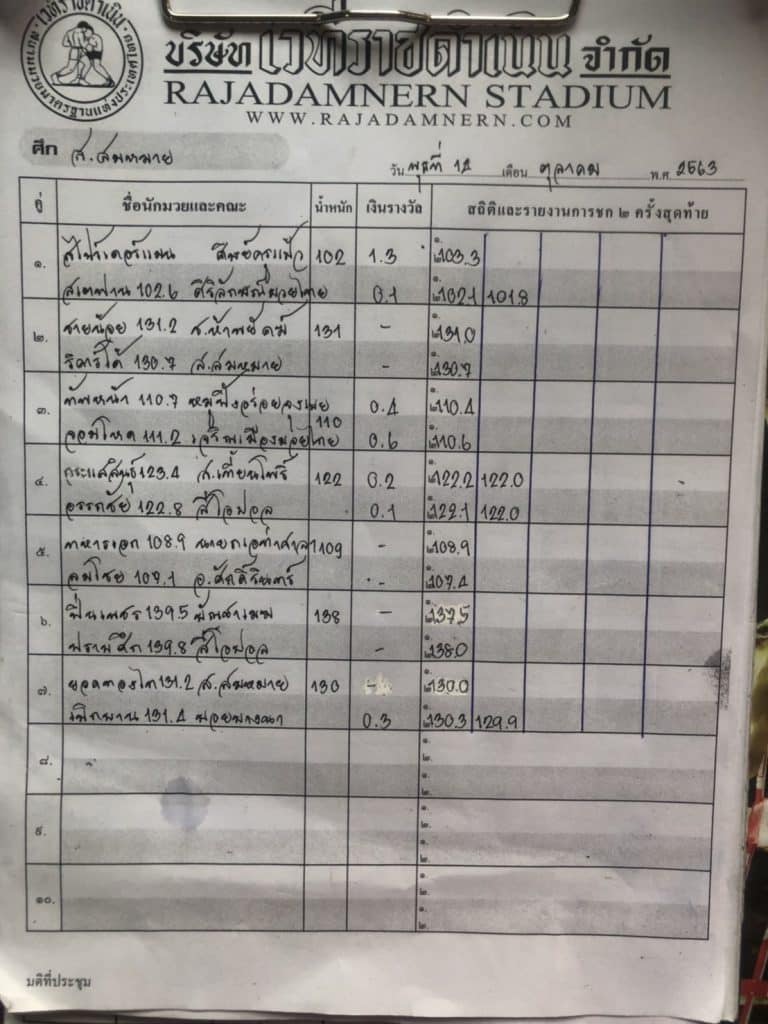 เวทีราชดำเนิน
สนามมวยมาตรฐานแห่งประเทศไทย
บริษัท เวทีราชดำเนิน จำกัด
RAJADAMNERN STADIUM
WWW.RAJADAMNERN.COM
ศึก ส.สมหมาย
วัน ที่ 12 เดือน ตุลาคม พ.ศ. 2563
คู่ ชื่อนักมวยและคณะ น้ำหนัก เงินรางวัล สถิติและรายงานการชก ๒ ครั้งสุดท้าย
๑. สไปเดอร์แมน ศิษย์ครูแป๊ว 102 1.3 ๑. ๒. 103.3
สเตฟาน 102.6 ศิริลักษณ์มวยไทย 0.1 ๑. ๒. 102.1 101.8
๒. ชายน้อย 131.2 ส.ห้าพยัคฆ์ 131 - ๑. ๒. 131.0
ริคาร์โด้ 130.7 ส.สมหมาย - ๑. ๒. 130.7
๓. ทัพหน้า 110.7 110 0.4 ๑. ๒. 110.4
จอมโหด 111.2 เจริญเมืองมวยไทย 0.6 ๑. ๒. 110.6
๔. กระแสสินธุ์ 123.4 ส.เทียนโพธิ์ 122 0.2 ๑. ๒. 122.2 122.0
อรรถชัย 122.8 สีโอปอล 0.1 ๑. ๒. 122.1 122.0
๕. ทหารเอก 108.9 109 - ๑. ๒. 108.9
ลมโชย 107.1 อ.ศักดิ์รินทร์ - ๑. ๒. 107.4
๖. ปิ่นเพชร 139.5 138 - ๑. ๒. 137.5
ปราบศึก 139.8 สีโอปอล - ๑. ๒. 138.0
๗. 131.2 ส.สมหมาย 130 - ๑. ๒. 130.0
เพิกพาน 131.4 0.3 ๑. ๒. 130.3 129.9
๘. ๑. ๒.
๑. ๒.
๙. ๑. ๒.
๑. ๒.
๑๐. ๑. ๒.
๑. ๒.
มติที่ประชุม